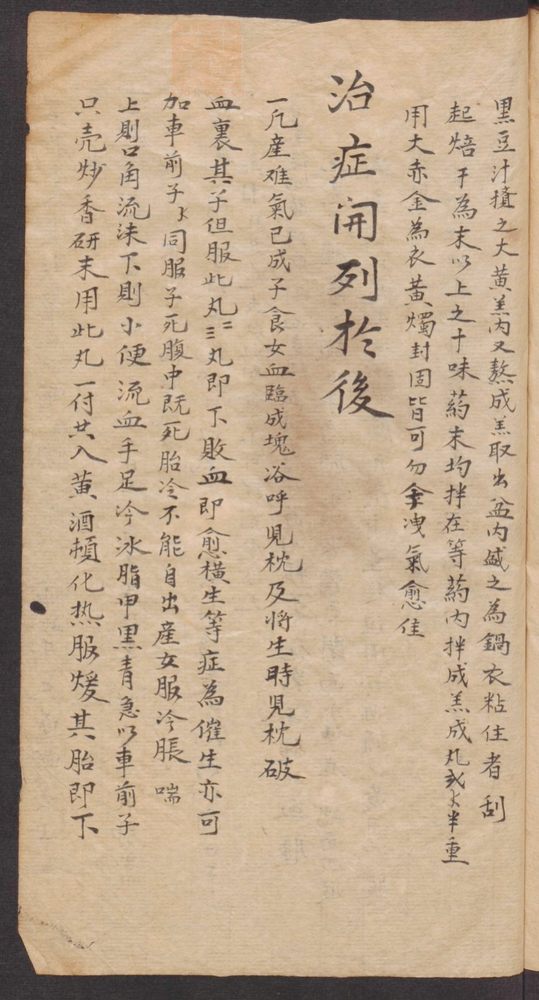 黑豆汁攙之大黄羔內又熬成羔取出盆內盛之為鍋衣粘住者刮
起焙干為末以上之十味葯末均拌在等葯內拌成羔成丸弍半重
用大赤金為衣黄燭封固皆可勿洩氣愈佳
治症開列於後
一凢産难氣已成子食女血臨成塊浴呼児枕及将生時見枕破
血裏其子但服此丸二三丸即下敗血即愈横生等症為催生亦可
加車前子同服子死腹中既死胎冷不能自出産女服冷脹喘
上則口角流沫下則小便流血手足冷冰脂甲黒青急以車前子
只壳炒香研末用此丸一付共入黄酒頓化热服煖其胎即下